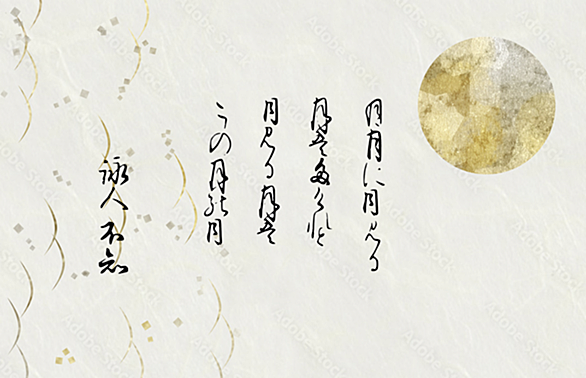 月月に月見る
月は多けれと
月見る月は
この月の月
詠人不知
Adobe Stock